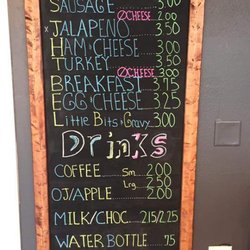 SAUSAGE 3.00
∅CHEESE 2.00
x JALAPENO 3.50
HAM & CHEESE 3.00
TURKEY 3.50
∅CHEESE 3.00
BREAKFAST 3.75
EGG & CHEESE 3.25
LITTLE BITS & GRAVY 3.00
Drinks
COFFEE Sm 2.00
Lrg 2.50
OJ/APPLE 2.00
MILK/CHOC. 2.15/2.25
WATER BOTTLE .75